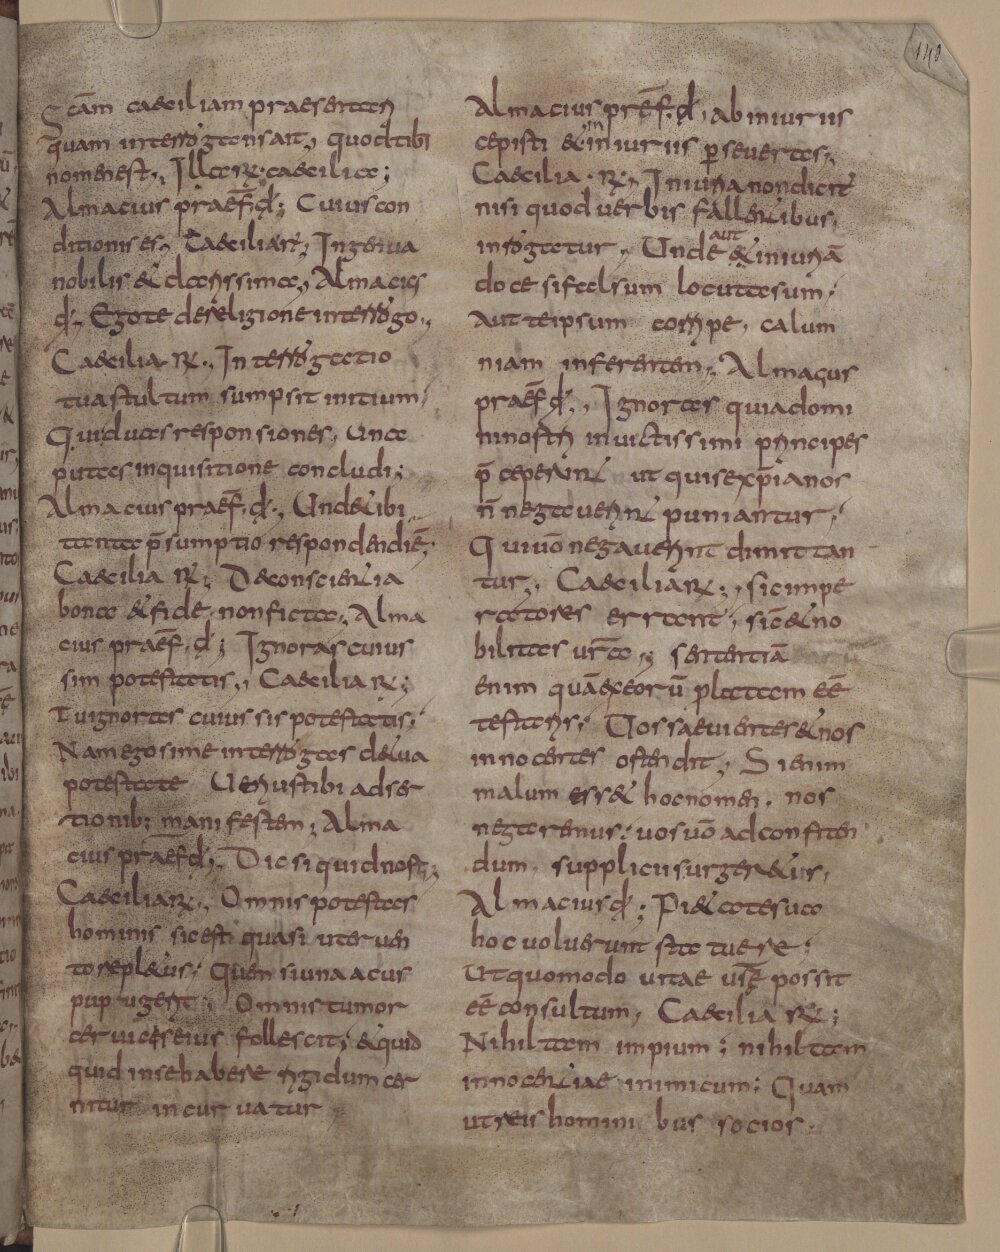 140
Scām caeciliam praesentari
quam interrogans ait, quod tibi
nomen est; Illa R̄; caecilia;
Almacius praef̄. d̄; Cuius con
ditionis es; Caecilia R̄; Ingenua
nobilis & clarissima; Almacius
d̄; Ego te de religione interrogo;
Caecilia R̄; Interrogatio
tua stultum sumpsit initium;
Qui duas responsiones, una
putas inquisitione concludi;
Almacius praef̄. d̄; Unde tibi
tanta p̄sumptio respondendi ē;
Caecilia R̄; De conscientia
bona & fide non ficta; Alma
cius praef̄. d̄; Ignoras cuius
sim potestatis; Caecilia R̄;
Tu ignoras cuius sis potestatis;
Nam ego si me interrogas de tua
potestate Veris tibi adser
tionib; manifestem; Alma
cius praef̄ d̄; Dic si quid nosti;
Caecilia R̄; Omnis potestas
hominis sic est quasi uter ven
to repletus; Quem si una acus
pupugerit; Omnis tumor
cervices eius follescit, & quid
quid in se habere rigidum cer
nitur incurvatur
Almacius pref̄. d̄; ab iniuriis
cepisti & in iniuriis p̱severas;
Caecilia R̄; Iniuria non dicit̄
nisi quod verbis fallentibus
inrogatur; Unde aut & iniuriā
doce si falsum locuta sum;
aut te ipsum corripe, calum
niam inferentem; Almacius
praef̄ d̄; Ignoras quia domi
ni nostri invictissimi principes
p̄ceperunt ut qui se xp̄ianos
n̄ negaverint puniantur;
Qui uō negaverint dimittan
tur; Caecilia R̄; sic impe
ratores errant, sic & no
bilitas ur̄a; sententiā
enim quā ex eorū plateam eē
testaris; Vos saevientes & nos
innocentes ostendit; Si enim
malum ess& hoc nomen, nos
negaremus; vos uō ad confiten
dum, suppliciis urgeretis;
Almacius d̄; Pietate sua
hoc voluerunt statuere;
Ut quomodo vitae us̄ę possit
eē consultum; Caecilia R̄;
Nihil tam impium; nihil tam
innocentiae inimicum; Quam
ut reis hominibus socios